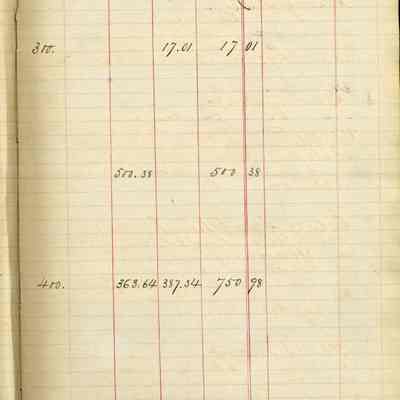 300. 17.01 17 01
500.38 500 38
400. 363.64 387.34 750 98